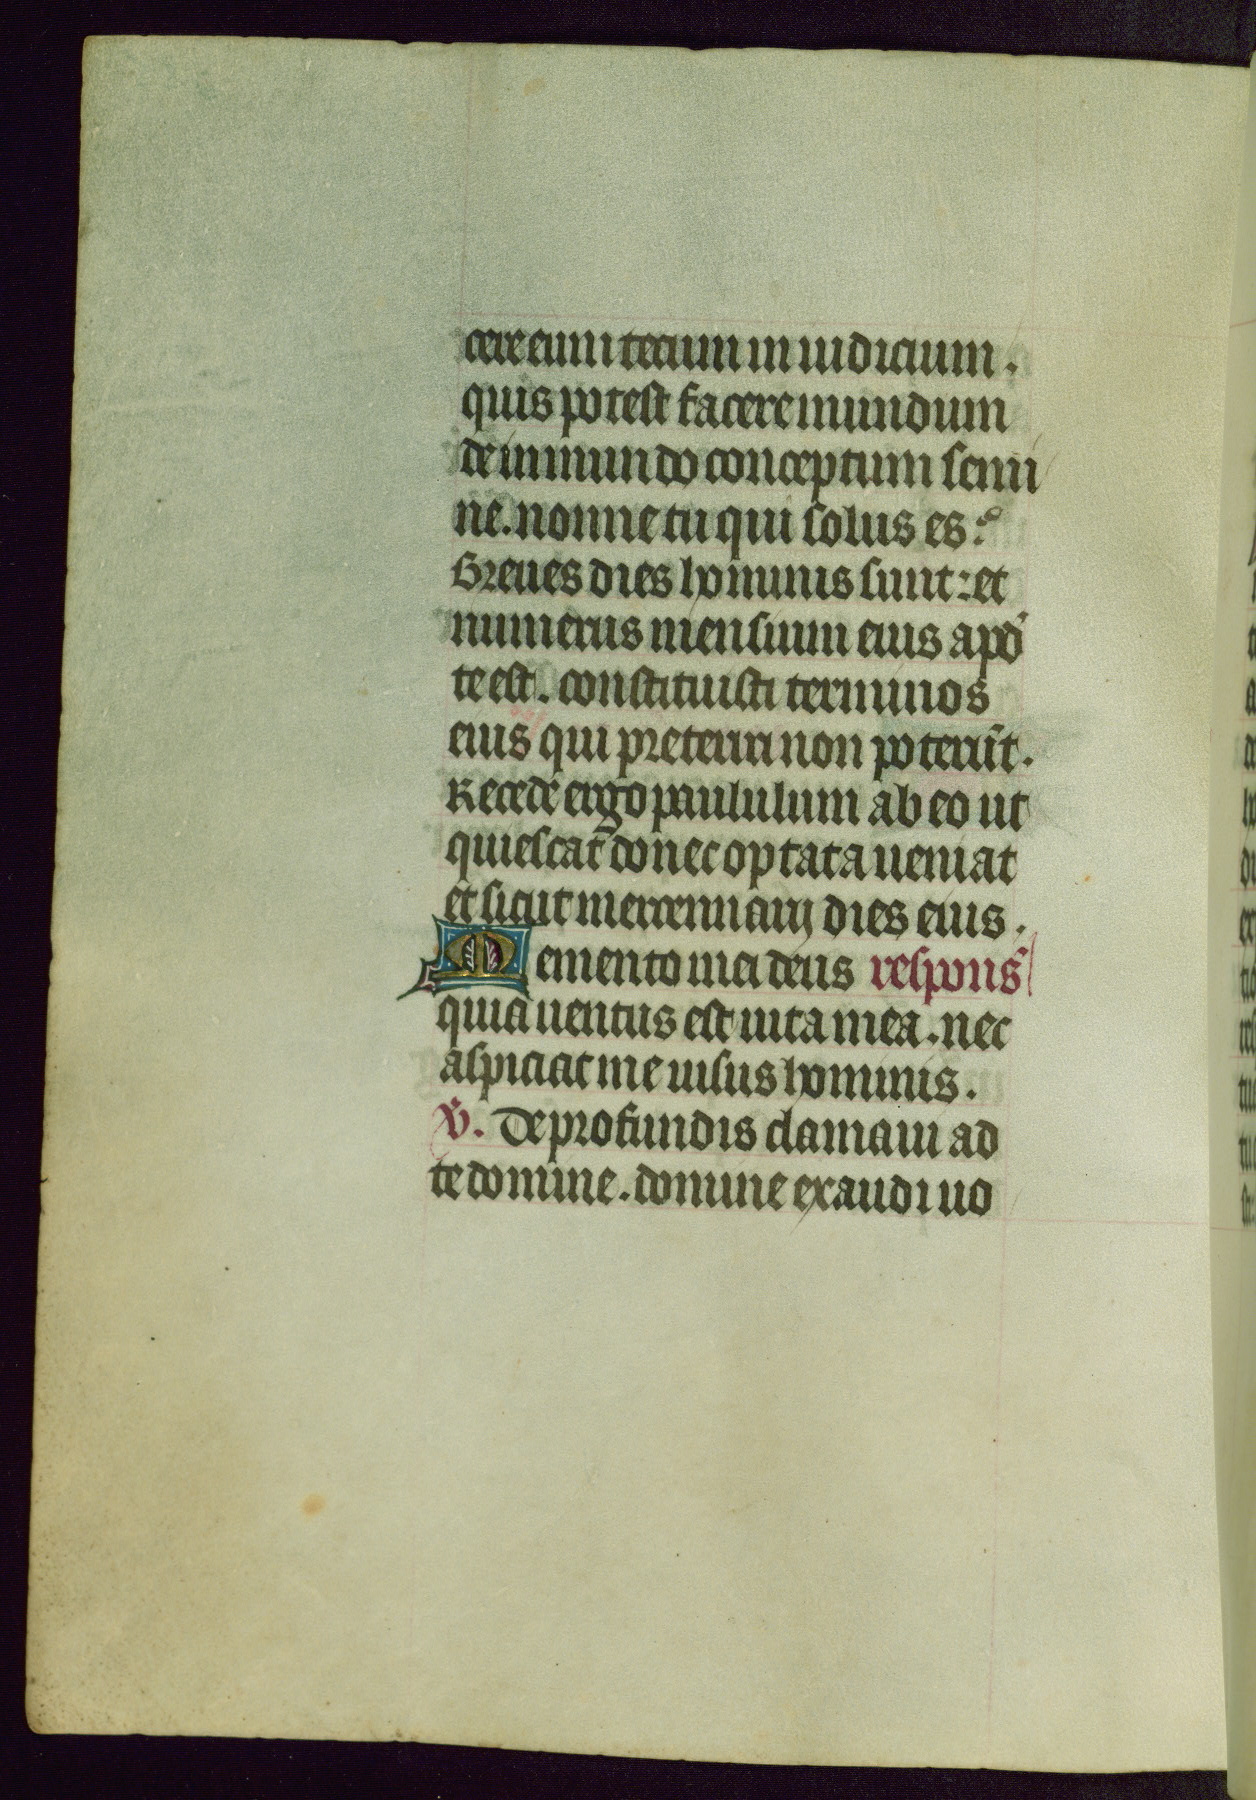 cere eum tecum in iudicium.
quis potest facere mundum
de inmundo conceptum semi
ne. nonne tu qui solus es?
Breues dies hominis sunt: et
numerus mensium eius apd̄
te est. constituisti terminos
eius qui preteriri non poterūt.
Recede ergo paululum ab eo ut
quiescat donec optata ueniat
et sicut mercennarij dies eius.
Memento mei deus respons̄
quia uentus est uita mea. nec
aspiciat me uisus hominis.
v̄. De profundis clamaui ad
te domine. domine exaudi uo